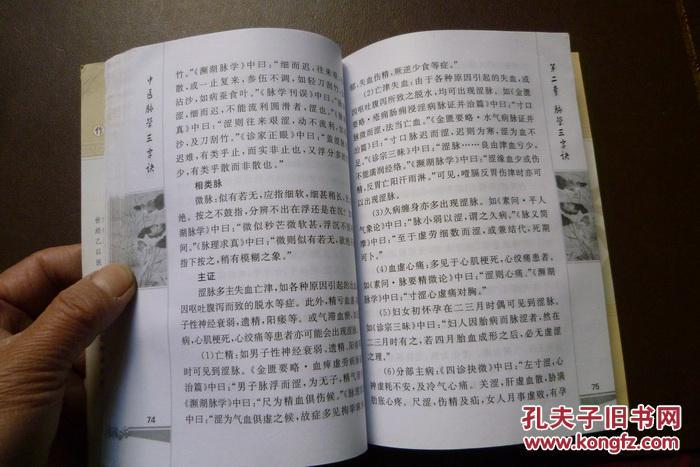 中医脉学三字诀
竹。”《濒湖脉学》中曰：“细而迟，往来
散，或一止复来，参伍不调，如轻刀刮竹，
沾沙，如病蚕食叶。”《脉学刊误》中曰：
涩，细而迟，不能流利圆滑者，涩也。”《
真》中曰：“涩则往来艰涩，动不流利，
沙，及刀刮竹。”《诊家正眼》中曰：“盖涩
迟难，有类乎止，而实非止也，又浮分多
有类乎散而非散也。”
相类脉
微脉：似有若无，应指细软，细甚稍长，
绝。按之不鼓指，分辨不出在浮还是在沉
湖脉学》中曰：“微似秒芒微软甚，浮沉不
间。”《脉理求真》中曰：“微则似有若无，欲
指下按之，稍有模糊之象。”
主证
涩脉多主失血亡津，如各种原因引起的出
因呕吐腹泻而致的脱水等症。此外，精亏血
子性神经衰弱，遗精，阳痿等。或气滞血瘀，
病，心肌梗死，心绞痛等患者亦可能会出现涩脉。
(1)亡精：如男子性神经衰弱，遗精，阳
时可见到涩脉。《金匮要略·血痹虚劳病脉
治篇》中曰：“男子脉浮而涩，为无子，精气
《濒湖脉学》中曰：“尺为精血俱伤候。”《脉
中曰：“涩为气血俱虚之候，故症多见拘挛麻
74
第二章 脉学三字诀
郁，失血伤精，厥逆少食等症。”
(2)亡津失血：由于各种原因引起的失血，或
大吐腹泻所致之脱水，均可出现涩脉。如《金匮
要略·疮痈肠痈浸淫病脉证并治篇》中曰：“寸口
脉微而涩，法当亡血。”《金匮要略·水气病脉证并
治篇》中曰：“寸口脉迟而涩，迟则为寒，涩为血不
足。”《诊宗三昧》中曰：“涩脉……良由津血亏少，
不能濡润经络。”《濒湖脉学》中曰：“涩缘血少或伤
精，反胃亡阳汗雨淋。”可见，噎膈反胃伤津时亦可
以出现涩脉。
(3)久病缠身亦多出现涩脉。如《素问·平人
气象论》中曰：“脉小弱以涩，谓之久病。”《脉义简
摩》中曰：“至于虚劳细数而涩，或兼结代，死期
可卜。”
(4)血虚心痛：多见于心肌梗死，心绞痛患者，
如《素问·脉要精微论》中曰：“涩则心痛。”《濒湖
脉学》中曰：“寸涩心虚痛对胸。”
(5)妇女初怀孕在二三月时偶可见到涩脉。
如《诊宗三昧》中曰：“妇人因胎病而脉涩者，然在
二三月时有之，若四月胎血成形之后，必无虚涩
之理。”
(6)分部主病：《四诊抉微》中曰：“左寸涩，心
神虚耗不安，及冷气心痛。关涩，肝虚血散，胁满
肋胀心疼。尺涩，伤精及疝，女人月事虚败，有孕
75
孔夫子旧书网
www.kongfz.com